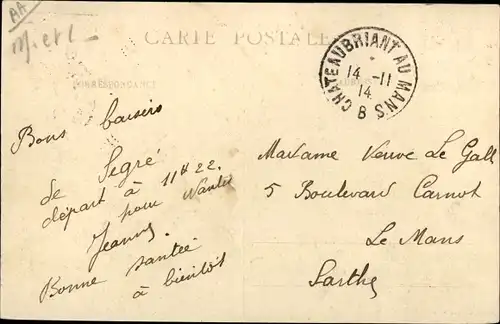 AA
M. et L
CARTE POSTALE
CORRESPONDANCE
CHATEAUBRIANT AU MANS B
14 -11
14
Bons baisers
de Segré
départ à 11h22.
pour Nantes
Jeanne
Bonne santée
à bientot
Madame Veuve Le Gall
5 Boulevard Carnot
Le Mans
Sarthe